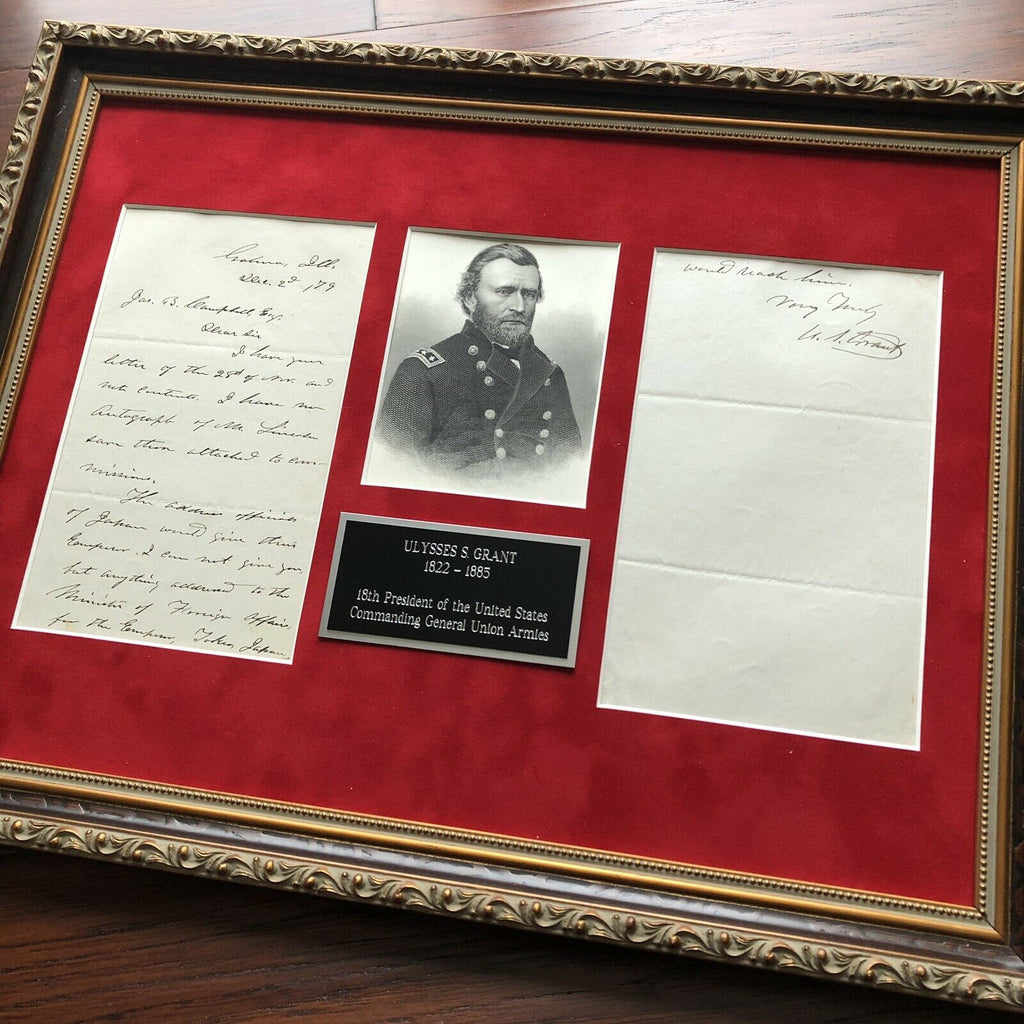 Galena, Ill.
Dec. 2d, 179
Jas. B. Campbell Esq.
Dear Sir
I have your
letter of the 28th of Nov. and
note contents. I have no
Autograph of Mr. Lincoln
save those attached to com-
missions.
The address officials
of Japan would give their
Emperor I can not give you,
but anything addressed to the
Minister of Foreign Affairs,
for the Emperor, Tokio, Japan
ULYSSES S. GRANT
1822 – 1885
18th President of the United States
Commanding General Union Armies
would reach him.
Very Truly
U. S. Grant